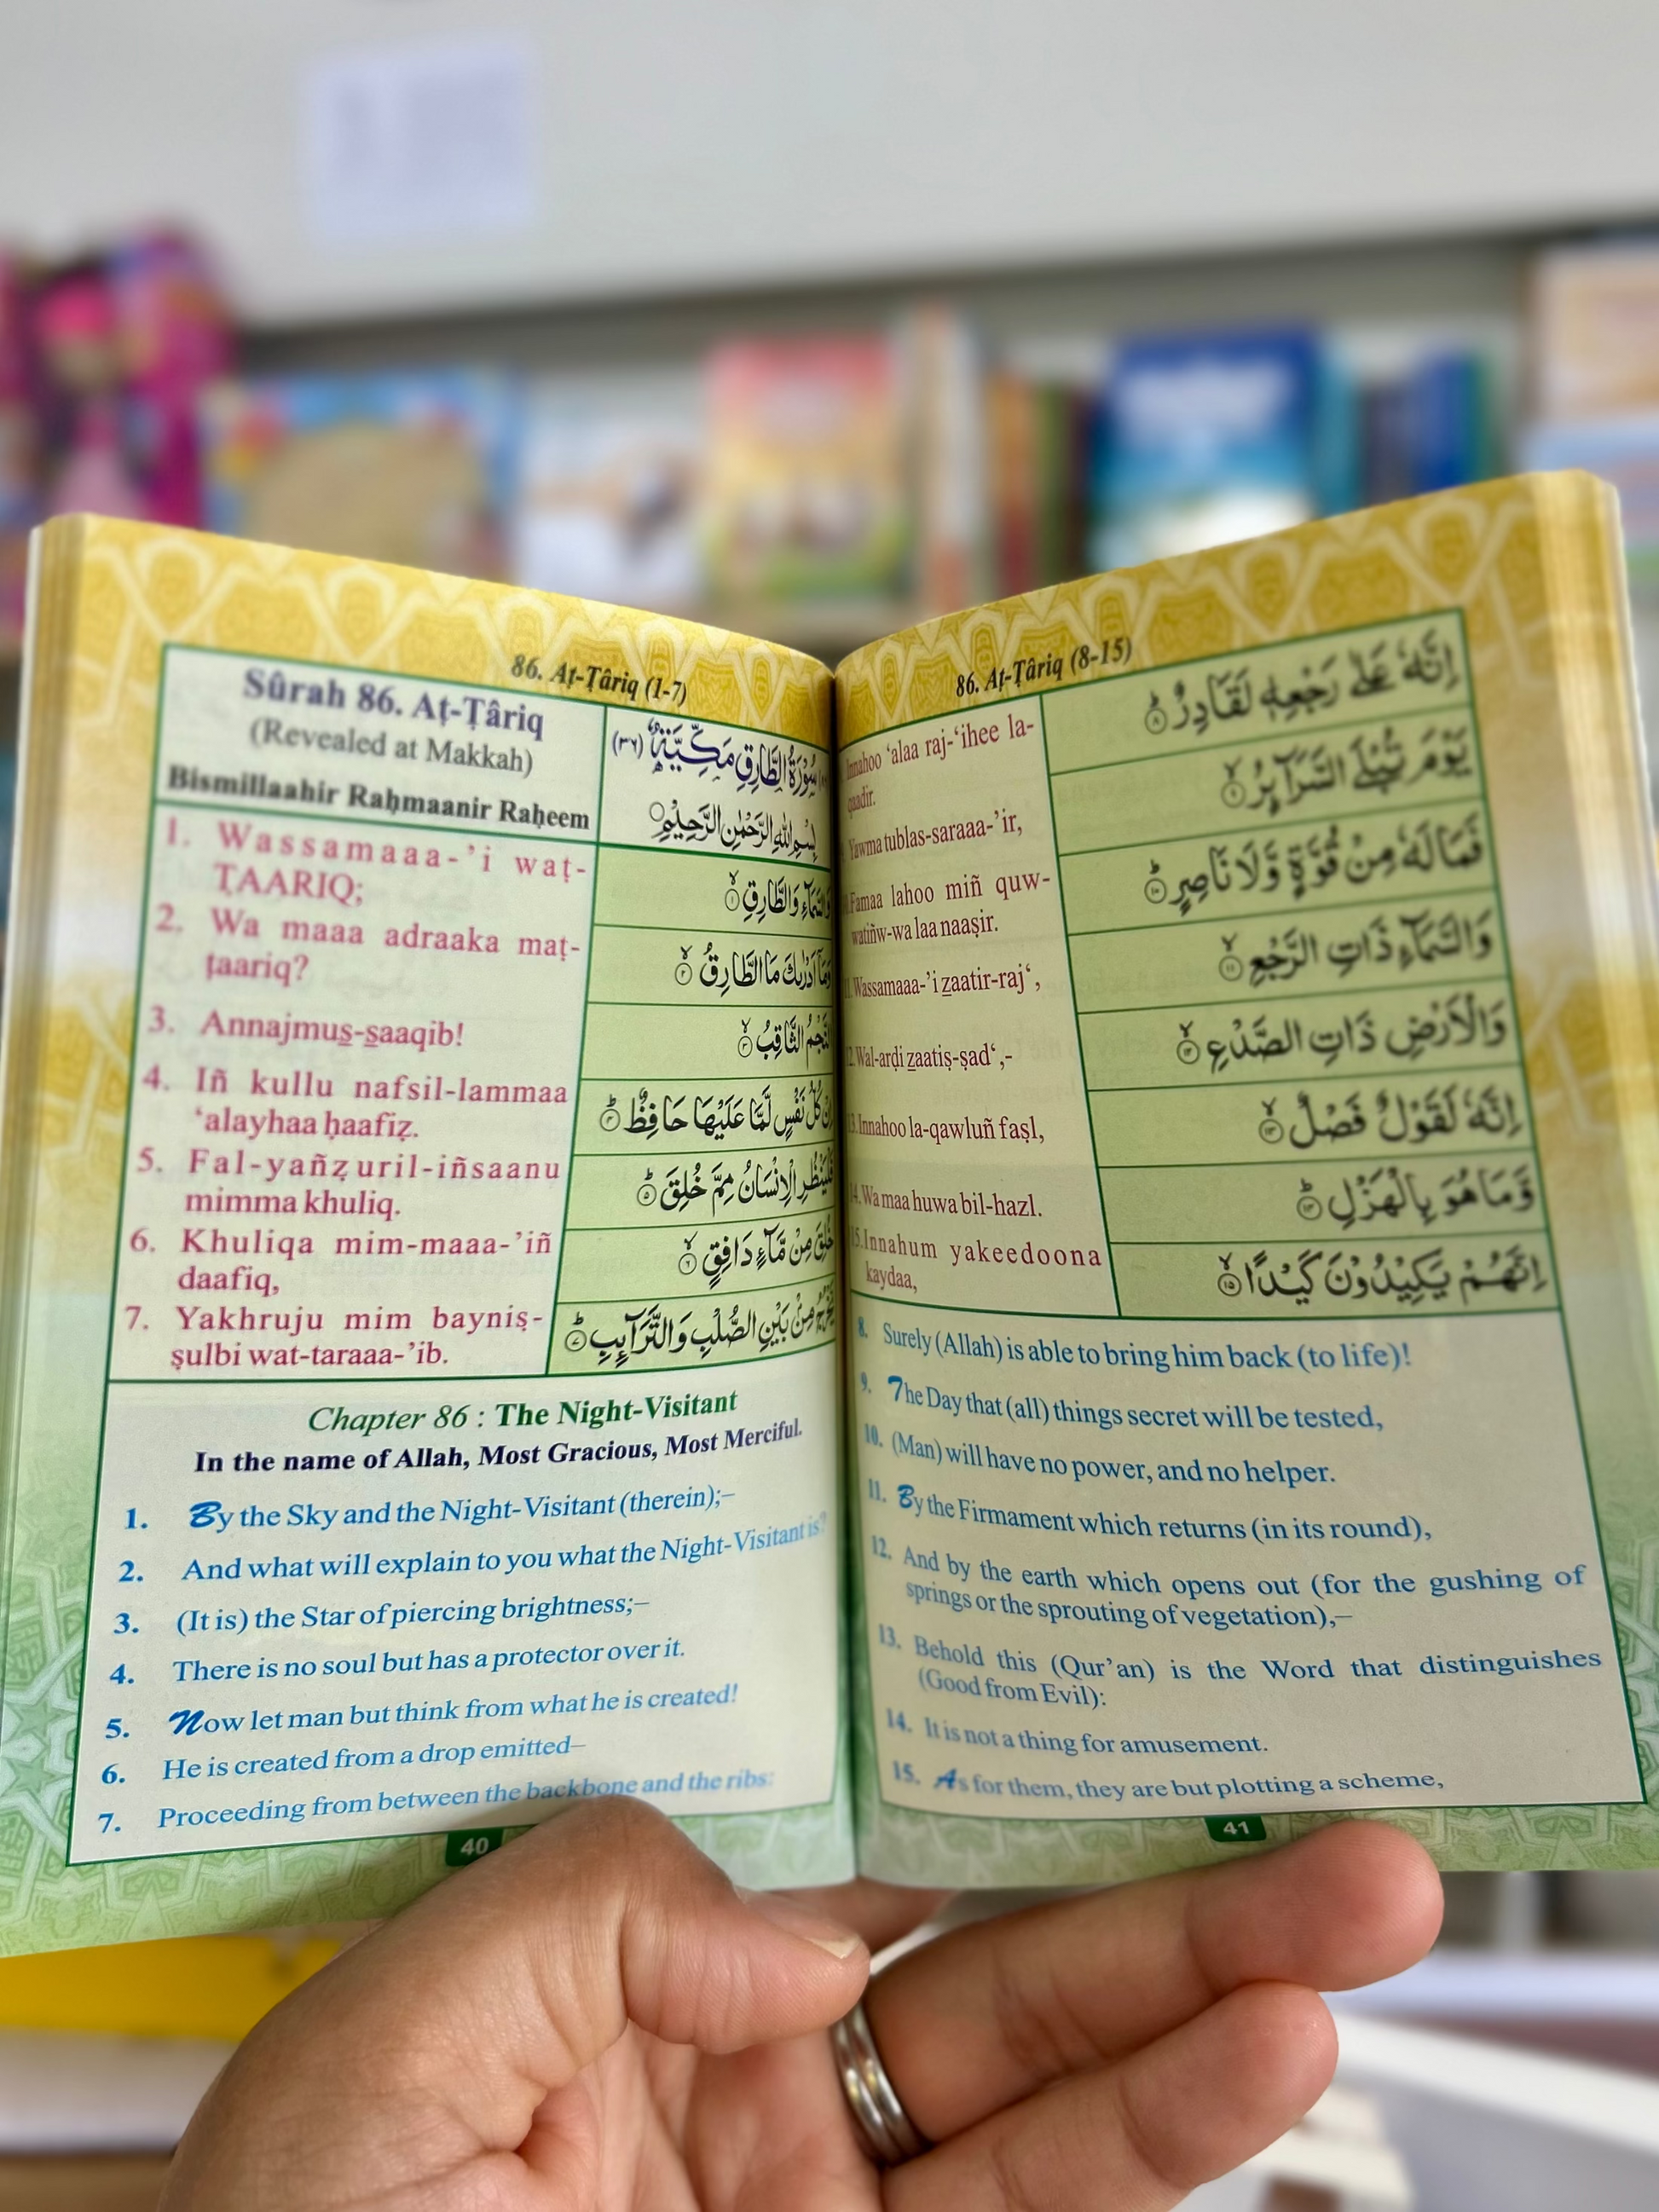 86. Aṭ-Ṭâriq (1-7)
Sûrah 86. Aṭ-Ṭâriq
(Revealed at Makkah)
Bismillaahir Raḥmaanir Raḥeem
سُوْرَةُ الطَّارِقِ مَكِّيَّةٌ (٣٦)
بِسْمِ اللّٰهِ الرَّحْمٰنِ الرَّحِيْمِ
1. Wassamaaa-’i waṭ-
ṬAARIQ;
2. Wa maaa adraaka maṭ-
ṭaariq?
3. Annajmus̲-s̲aaqib!
4. Iñ kullu nafsil-lammaa
‘alayhaa ḥaafiẓ.
5. Fal-yañẓuril-iñsaanu
mimma khuliq.
6. Khuliqa mim-maaa-’iñ
daafiq,
7. Yakhruju mim bayniṣ-
ṣulbi wat-taraaa-’ib.
وَالسَّمَآءِ وَالطَّارِقِ ۙ﴿١﴾
وَمَآ اَدْرٰىكَ مَا الطَّارِقُ ۙ﴿٢﴾
النَّجْمُ الثَّاقِبُ ۙ﴿٣﴾
اِنْ كُلُّ نَفْسٍ لَّمَّا عَلَيْهَا حَافِظٌ ؕ﴿٤﴾
فَلْيَنْظُرِ الْاِنْسَانُ مِمَّ خُلِقَ ؕ﴿٥﴾
خُلِقَ مِنْ مَّآءٍ دَافِقٍ ۙ﴿٦﴾
يَّخْرُجُ مِنْۢ بَيْنِ الصُّلْبِ وَالتَّرَآىِٕبِ ؕ﴿٧﴾
Chapter 86 : The Night-Visitant
In the name of Allah, Most Gracious, Most Merciful.
1. By the Sky and the Night-Visitant (therein);–
2. And what will explain to you what the Night-Visitant is?
3. (It is) the Star of piercing brightness;–
4. There is no soul but has a protector over it.
5. Now let man but think from what he is created!
6. He is created from a drop emitted–
7. Proceeding from between the backbone and the ribs:
40
86. Aṭ-Ṭâriq (8-15)
Innahoo ‘alaa raj-‘ihee la-
qaadir.
Yawma tublas-saraaa-’ir,
Famaa lahoo miñ quw-
watiñw-wa laa naaṣir.
Wassamaaa-’i z̲aatir-raj‘,
12. Wal-arḍi z̲aatiṣ-ṣad‘,-
13. Innahoo la-qawluñ faṣl,
14. Wa maa huwa bil-hazl.
15. Innahum yakeedoona
kaydaa,
اِنَّهٗ عَلٰى رَجْعِهٖ لَقَادِرٌ ؕ﴿٨﴾
يَوْمَ تُبْلَى السَّرَآىِٕرُ ۙ﴿٩﴾
فَمَا لَهٗ مِنْ قُوَّةٍ وَّلَا نَاصِرٍ ؕ﴿١٠﴾
وَالسَّمَآءِ ذَاتِ الرَّجْعِ ۙ﴿١١﴾
وَالْاَرْضِ ذَاتِ الصَّدْعِ ۙ﴿١٢﴾
اِنَّهٗ لَقَوْلٌ فَصْلٌ ۙ﴿١٣﴾
وَّمَا هُوَ بِالْهَزْلِ ؕ﴿١٤﴾
اِنَّهُمْ يَكِيْدُوْنَ كَيْدًا ۙ﴿١٥﴾
8. Surely (Allah) is able to bring him back (to life)!
9. The Day that (all) things secret will be tested,
10. (Man) will have no power, and no helper.
11. By the Firmament which returns (in its round),
12. And by the earth which opens out (for the gushing of
springs or the sprouting of vegetation),–
13. Behold this (Qur’an) is the Word that distinguishes
(Good from Evil):
14. It is not a thing for amusement.
15. As for them, they are but plotting a scheme,
41